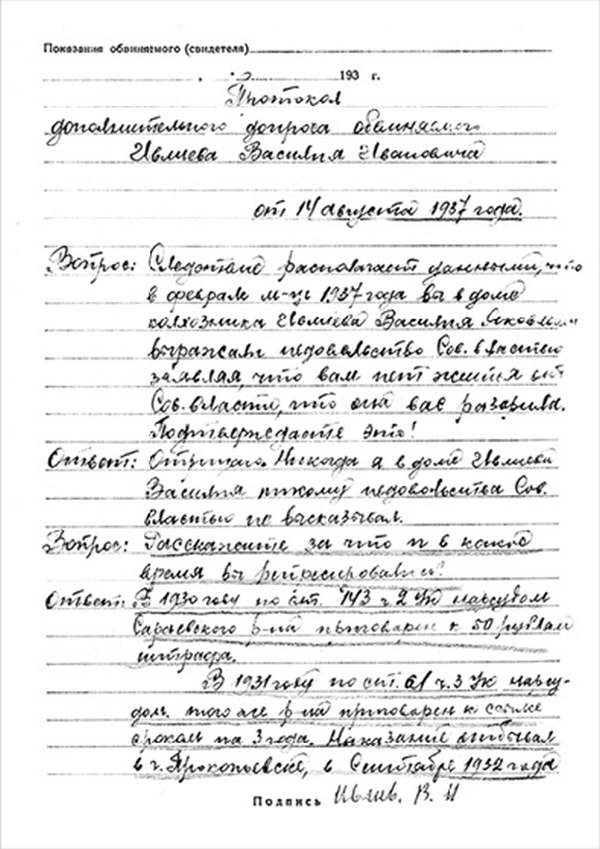 Показания обвиняемого (свидетеля)
193 г.
Протокол
дополнительного допроса обвиняемого
Ивлиева Василия Ивановича
от 14 августа 1937 года.
Вопрос: Следствие располагает данными, что
в феврале м-це 1937 года вы в доме
колхозника Ивлиева Василия Яковлевича
выражали недовольство Сов. властью
заявляя, что вам нет жизни от
Сов. власти, что она вас разорила.
Подтверждаете это?
Ответ: Отрицаю. Никогда я в доме Ивлиева
Василия никому недовольства Сов.
властью не высказывал.
Вопрос: Расскажите за что и в какое
время вы репрессировались?
Ответ: В 1930 году по ст. 143 ч 2 УК нарсудом
Сараевского р-на приговорен к 50 рублям
штрафа.
В 1931 году по ст. 61 ч. 3 УК нарсу-
дом того же р-на приговорен к ссылке
сроком на 3 года. Наказание отбывал
в г. Прокопьевске, в Сентябре 1932 года
Подпись Ивлиев. В. И